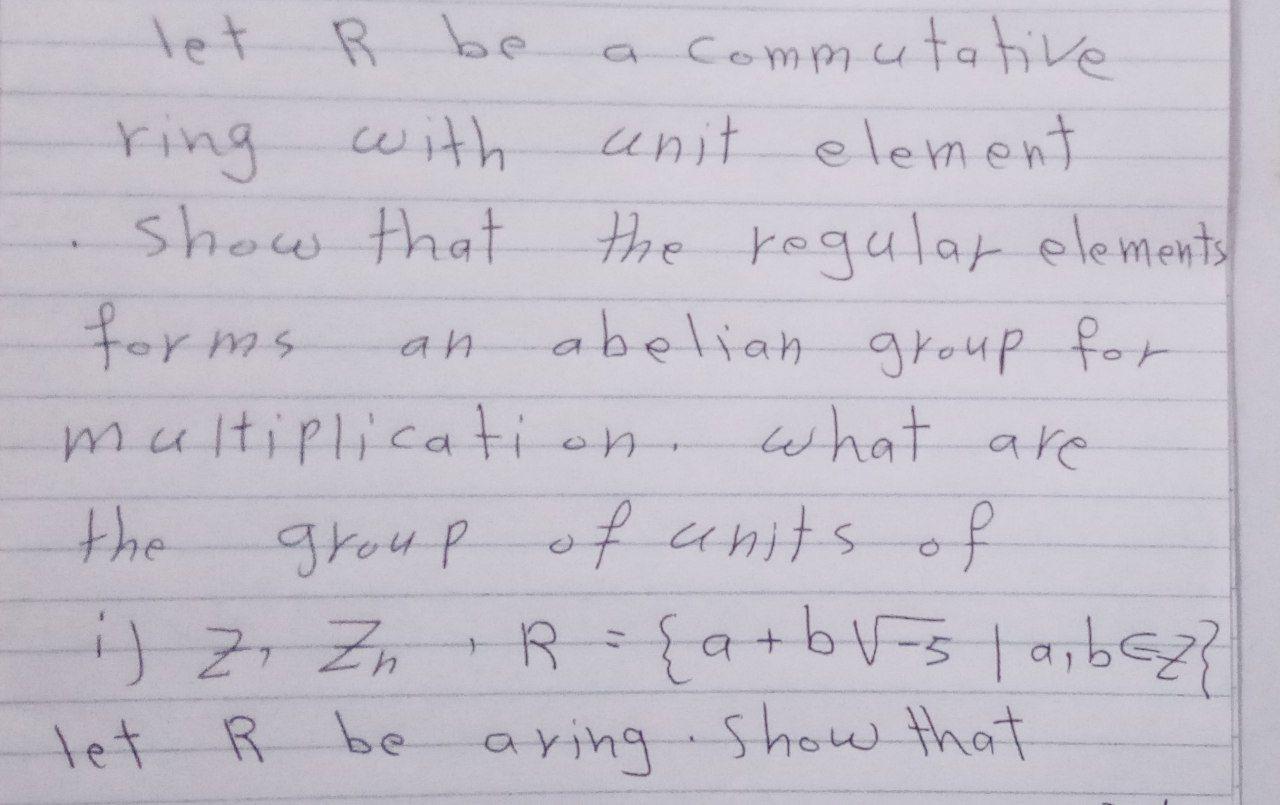 let R be a commutative
ring with unit element
. show that the regular elements
forms an abelian group for
multiplication. what are
the group of units of
i) Z, Zn, R = {a + b√-5 | a,b ∈ Z}
let R be a ring. show that